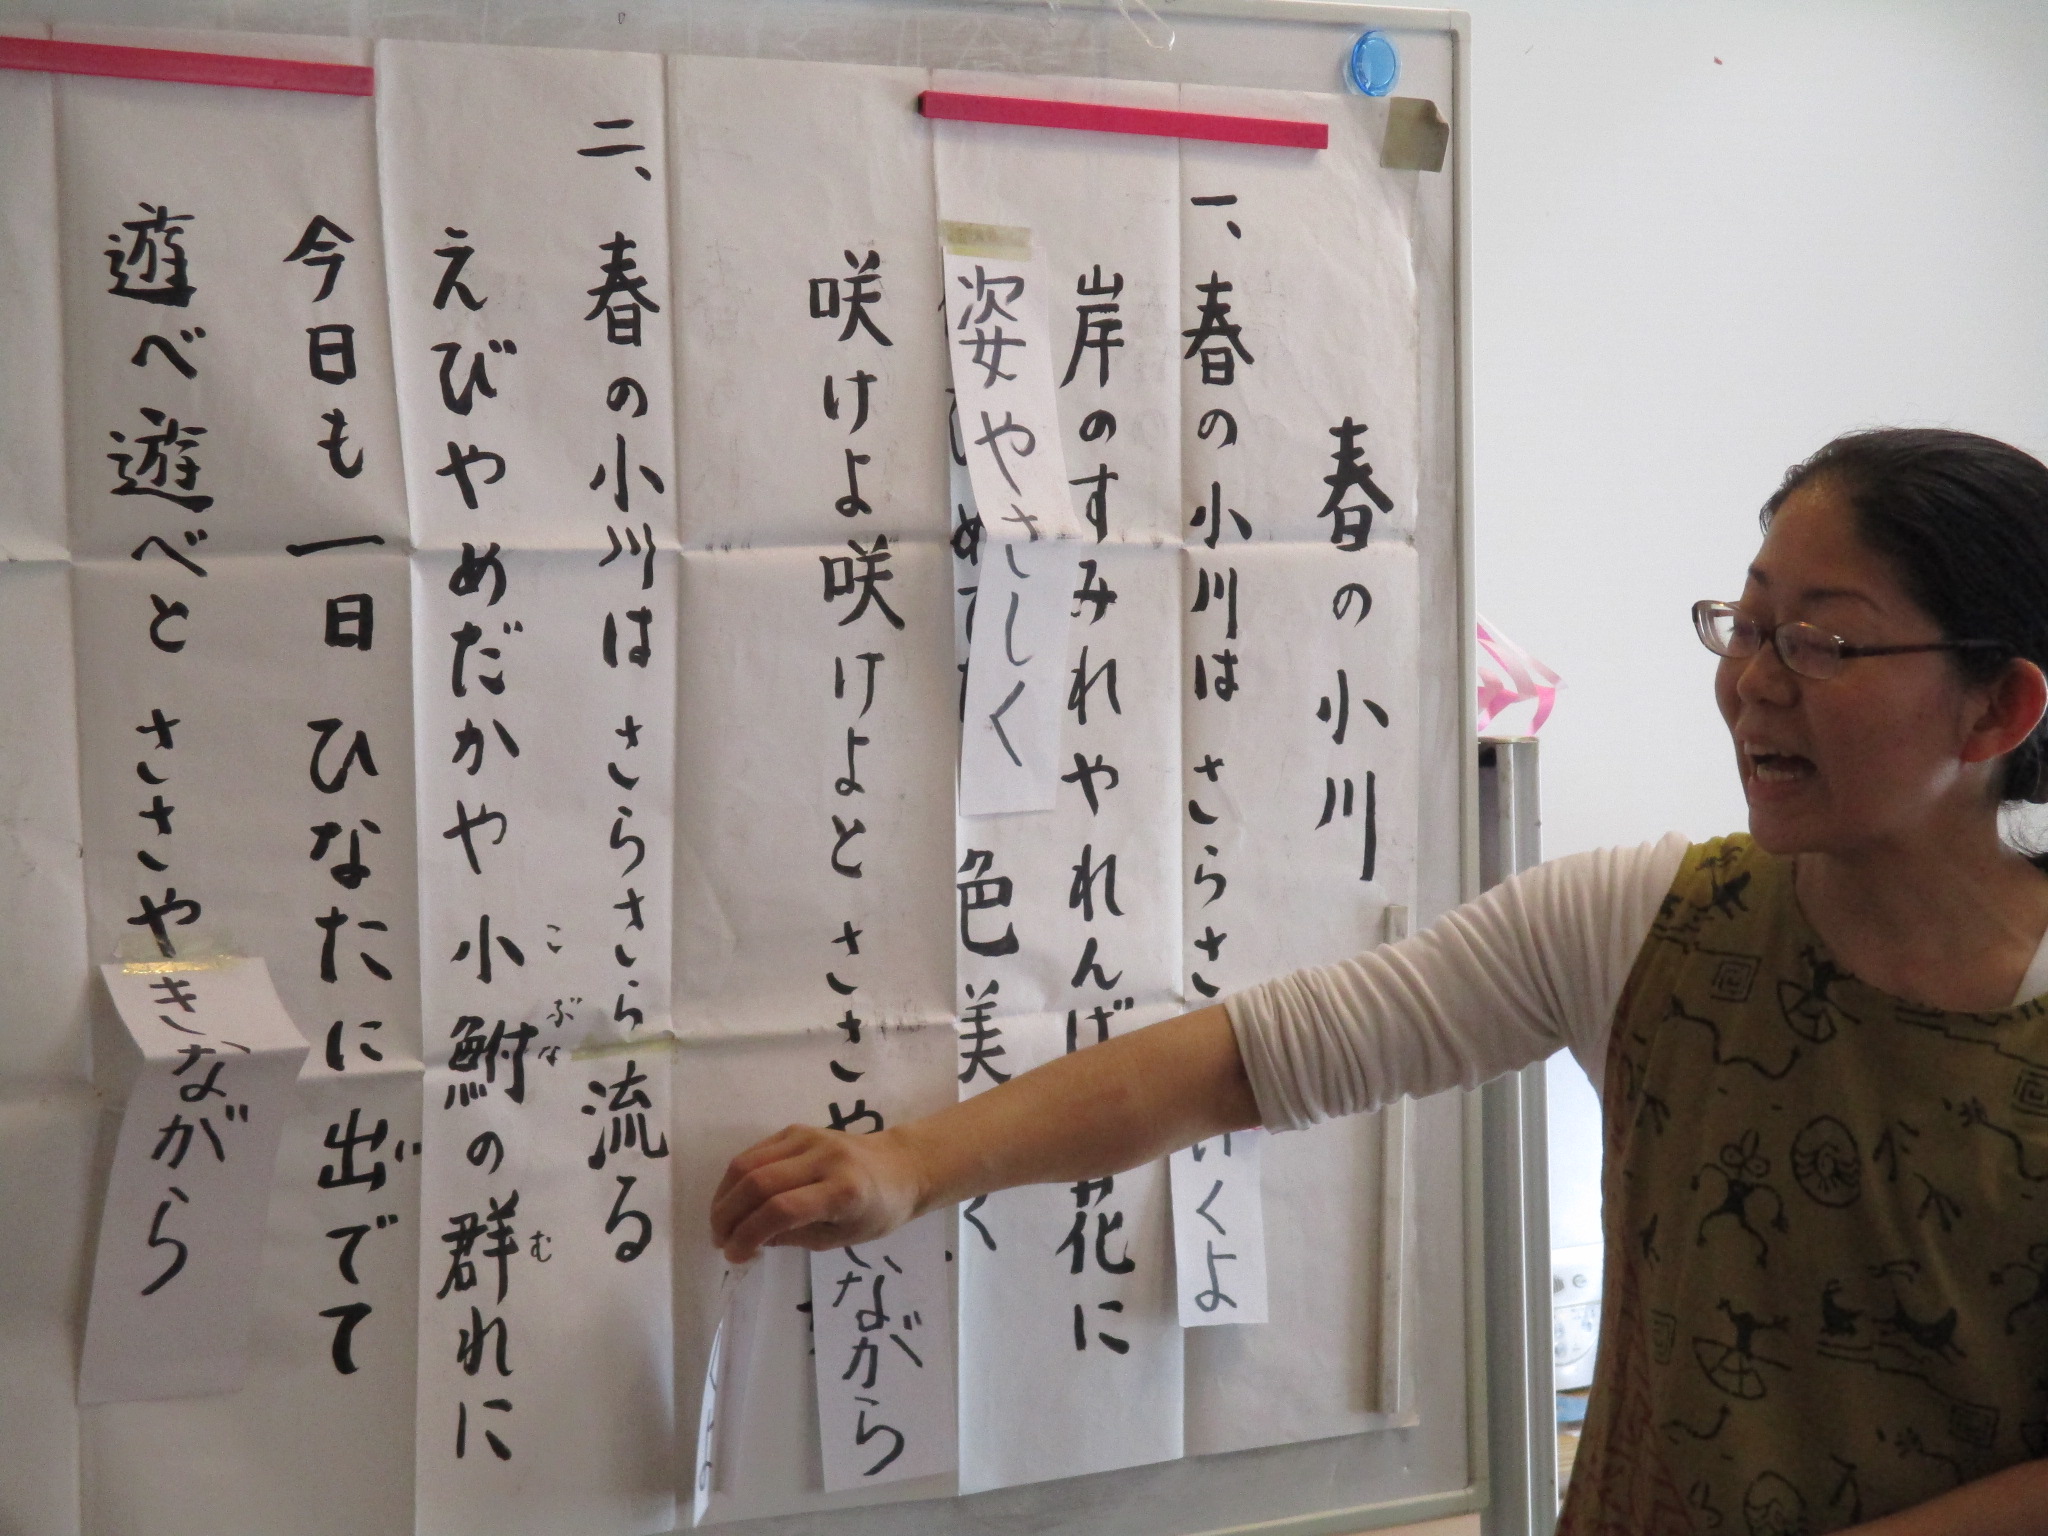 春の小川
一、春の小川は さらさ いくよ
岸のすみれやれんげ 花に
姿やさしく 色美 く
咲けよ咲けよと ささや いながら
二、春の小川は さらさら流る
えびやめだかや小鮒の群れに
こぶな む
今日も一日 ひなたに出でて
遊べ遊べと ささやきながら